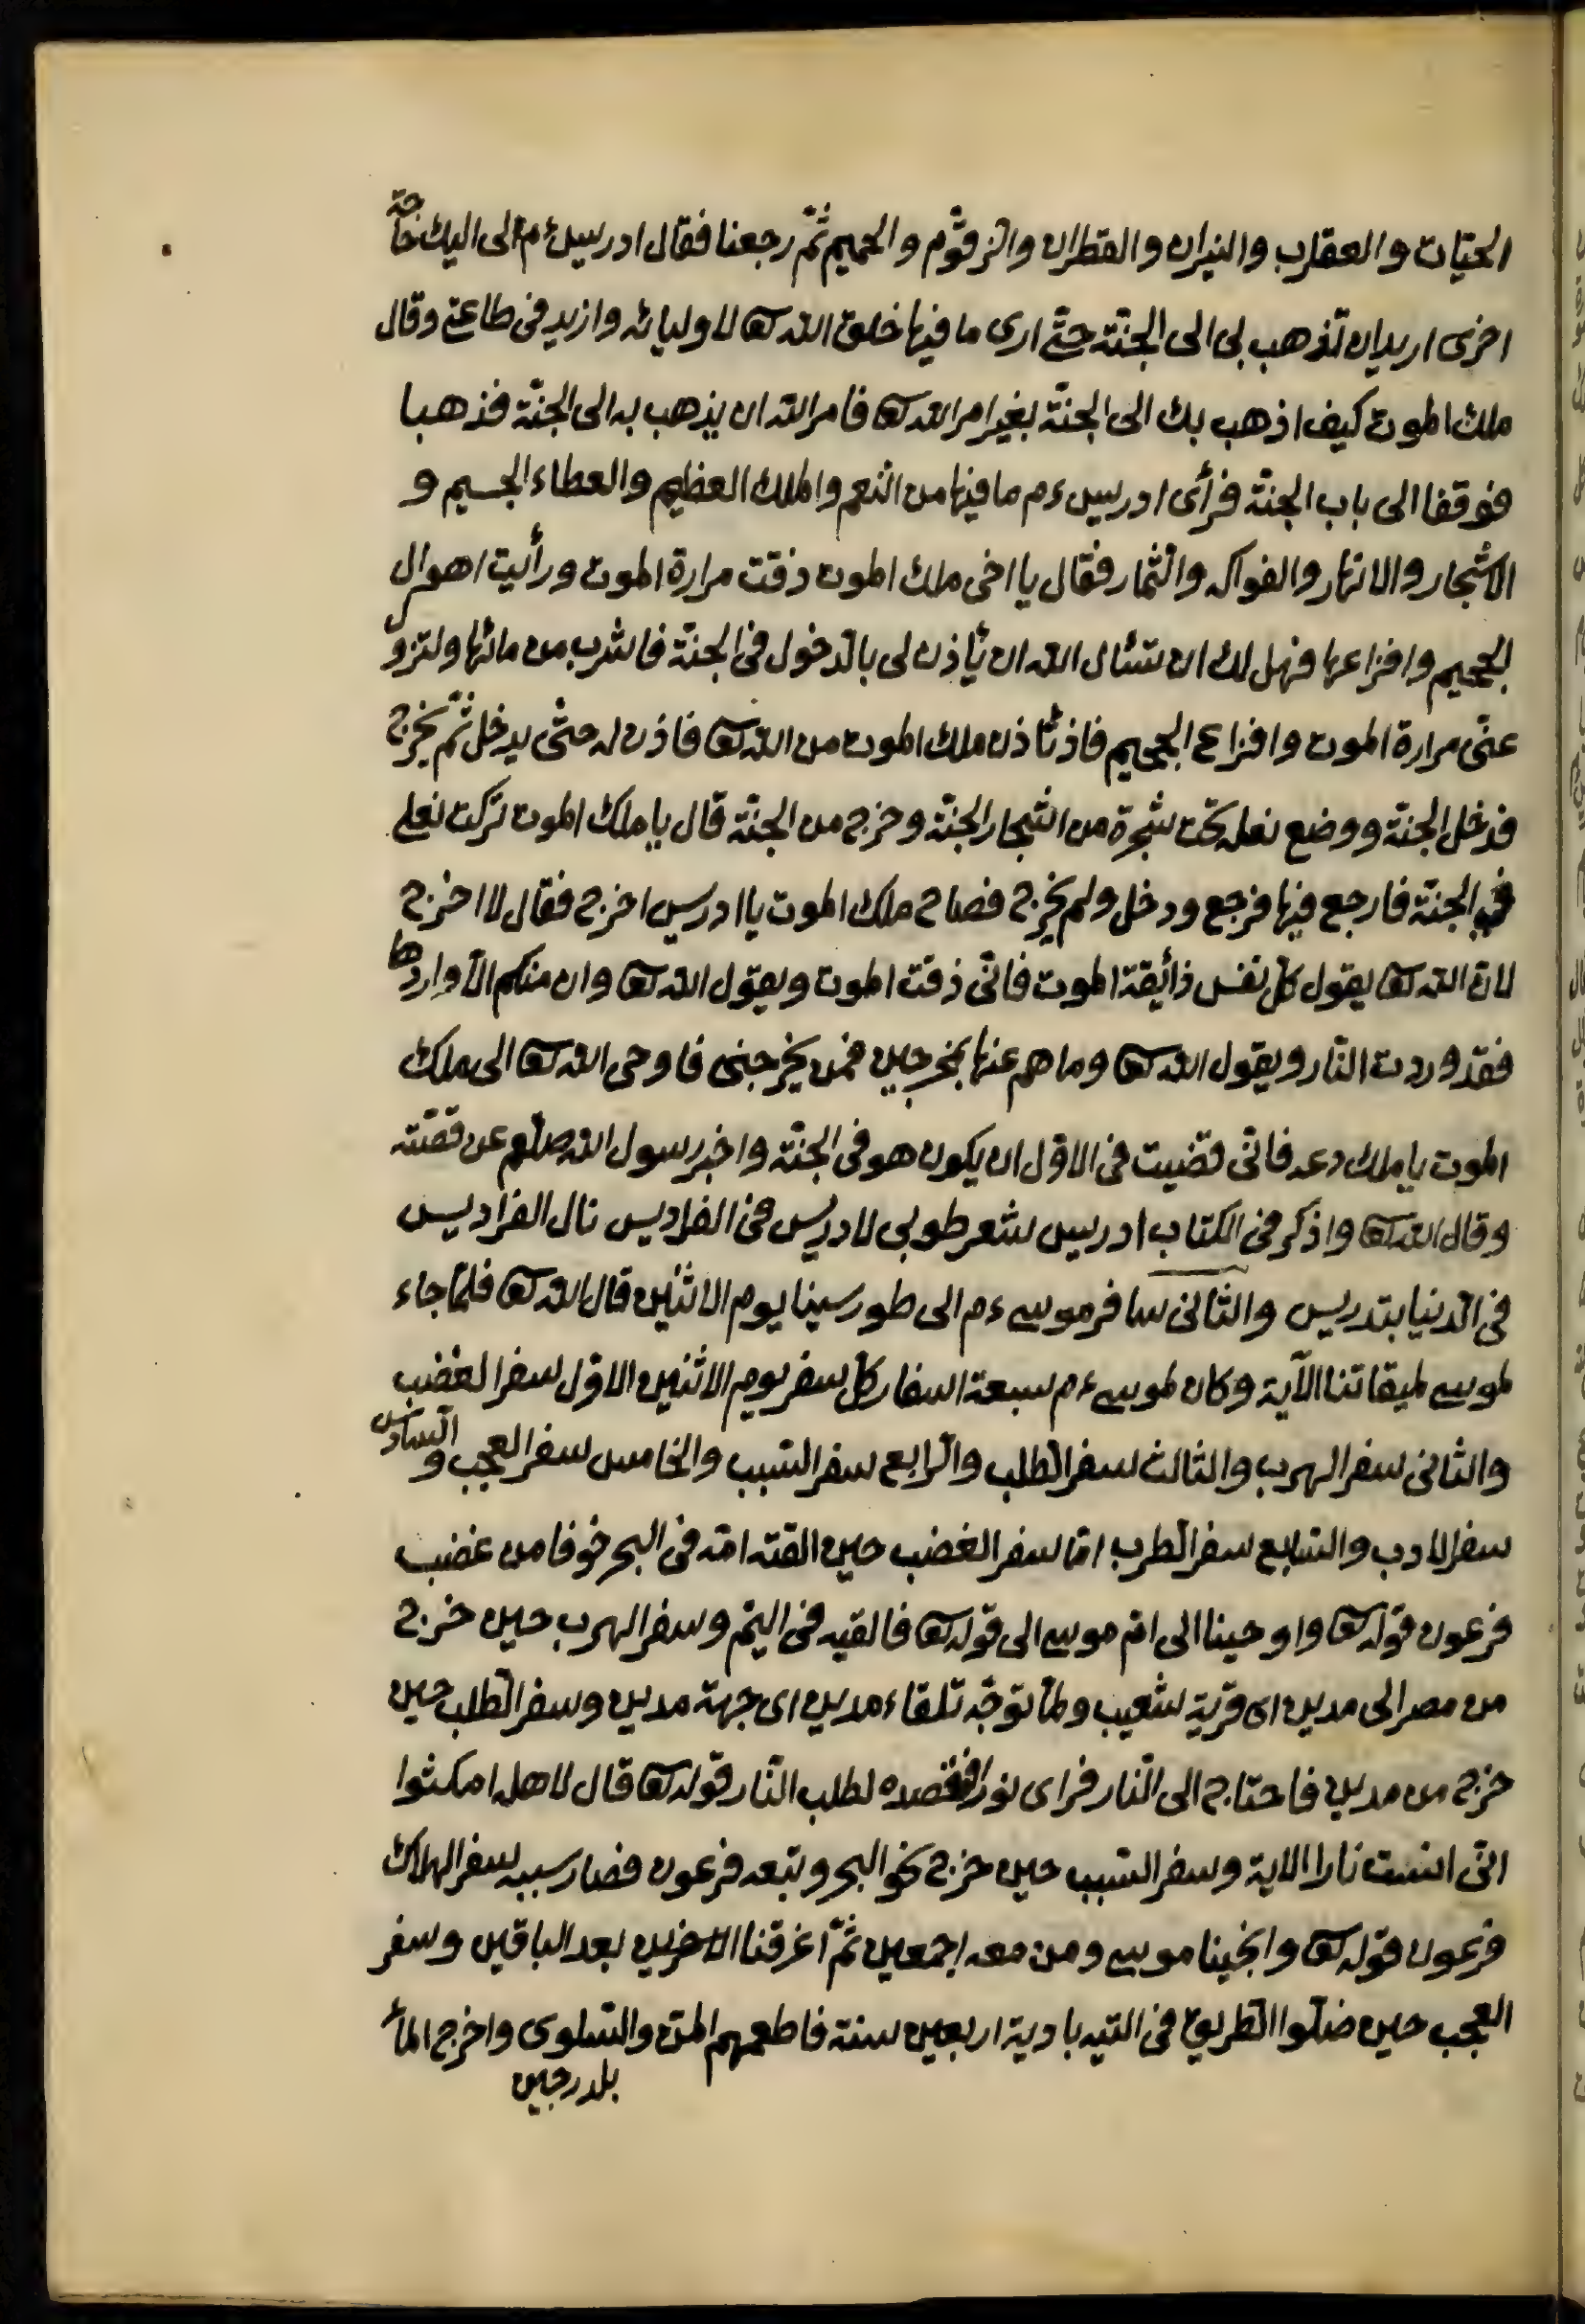 الحيّات والعقارب والنيران والقطران والزقّوم والحميم ثمّ رجعنا فقال ادريس ءم لى اليك حاجة
اخرى اريد ان تذهب بى الى الجنّة حتّى ارى ما فيها خلق الله تع لاوليائه وازيد فى طاعتى وقال
ملك الموت كيف اذهب بك الى الجنّة بغير امر الله تع فامر الله ان يذهب به الى الجنّة فذهبا
فوقفا الى باب الجنّة فرأى ادريس ءم ما فيها من النعم والملك العظيم والعطاء الجسيم و
الاشجار والانهار والفواكه والثمار فقال يا اخى ملك الموت ذقت مرارة الموت ورأيت اهوال
الجحيم وافزاعها فهل لك ان تسئال الله ان يأذن لى بالدخول فى الجنّة فاشرب من مائها ولتزول
عنّى مرارة الموت وافزاع الجحيم فاذتأذن ملك الموت من الله تع فاذن له حتّى يدخل ثمّ يخرج
فدخل الجنّة ووضع نعله تحت شجرة من اشجار الجنّة وخرج من الجنّة قال يا ملك الموت تركت نعلى
فى الجنّة فارجع فيها فرجع ودخل ولم يخرج فصاح ملك الموت يا ادرس اخرج فقال لا اخرج
لانّ الله تع يقول كلّ نفس ذائقة الموت فانّى ذقت الموت ويقول الله تع وان منكم الّا واردها
فقد وردت النّار ويقول الله تع وما هم عنها بمخرجين فمن يخرجنى فاوحى الله تع الى ملك
الموت يا ملك دعه فانّى قضيت فى الاوّل ان يكون هو فى الجنّة واخبر رسول الله صلعم عن قصّته
وقال الله تع واذكر فى الكتاب ادريس شعر طوبى لادريس فى الفراديس نال الفراديس
فى الدنيا بتدريس والثانى سافر موسى ءم الى طور سينا يوم الاثنين قال الله تع فلمّا جاء
لموسى لميقاتنا الآية وكان لموسى ءم سبعة اسفار كلّ سفر يوم الاثنين الاوّل سفر الغضب
والثانى سفر الهرب والثالث سفر الطلب والرابع سفر السبب والخامس سفر العجب والسادس
سفر الادب والسابع سفر الطرب امّا سفر الغضب حين القته امّه فى البحر خوفا من غضب
فرعون قوله تع واوحينا الى امّ موسى الى قوله تع فالقيه فى اليمّ وسفر الهرب حين خرج
من مصر الى مدين اى قرية شعيب ولمّا توجّه تلقاء مدين اى جهة مدين وسفر الطلب حين
خرج من مدين فاحتاج الى النّار فراى نورا فقصده لطلب النّار قوله تع قال لاهله امكثوا
انّى انست نارا الاية وسفر السبب حين خرج نحو البحر وتبعه فرعون فصار سببه سفر الهلاك
فرعون قوله تع وانجينا موسى ومن معه اجمعين ثمّ اغرقنا الاخرين بعد الباقين وسفر
العجب حين ضلّوا الطريق فى التيه بادية اربعين سنة فاطعمهم المنّ والسلوى واخرج الماء
بلدرجين